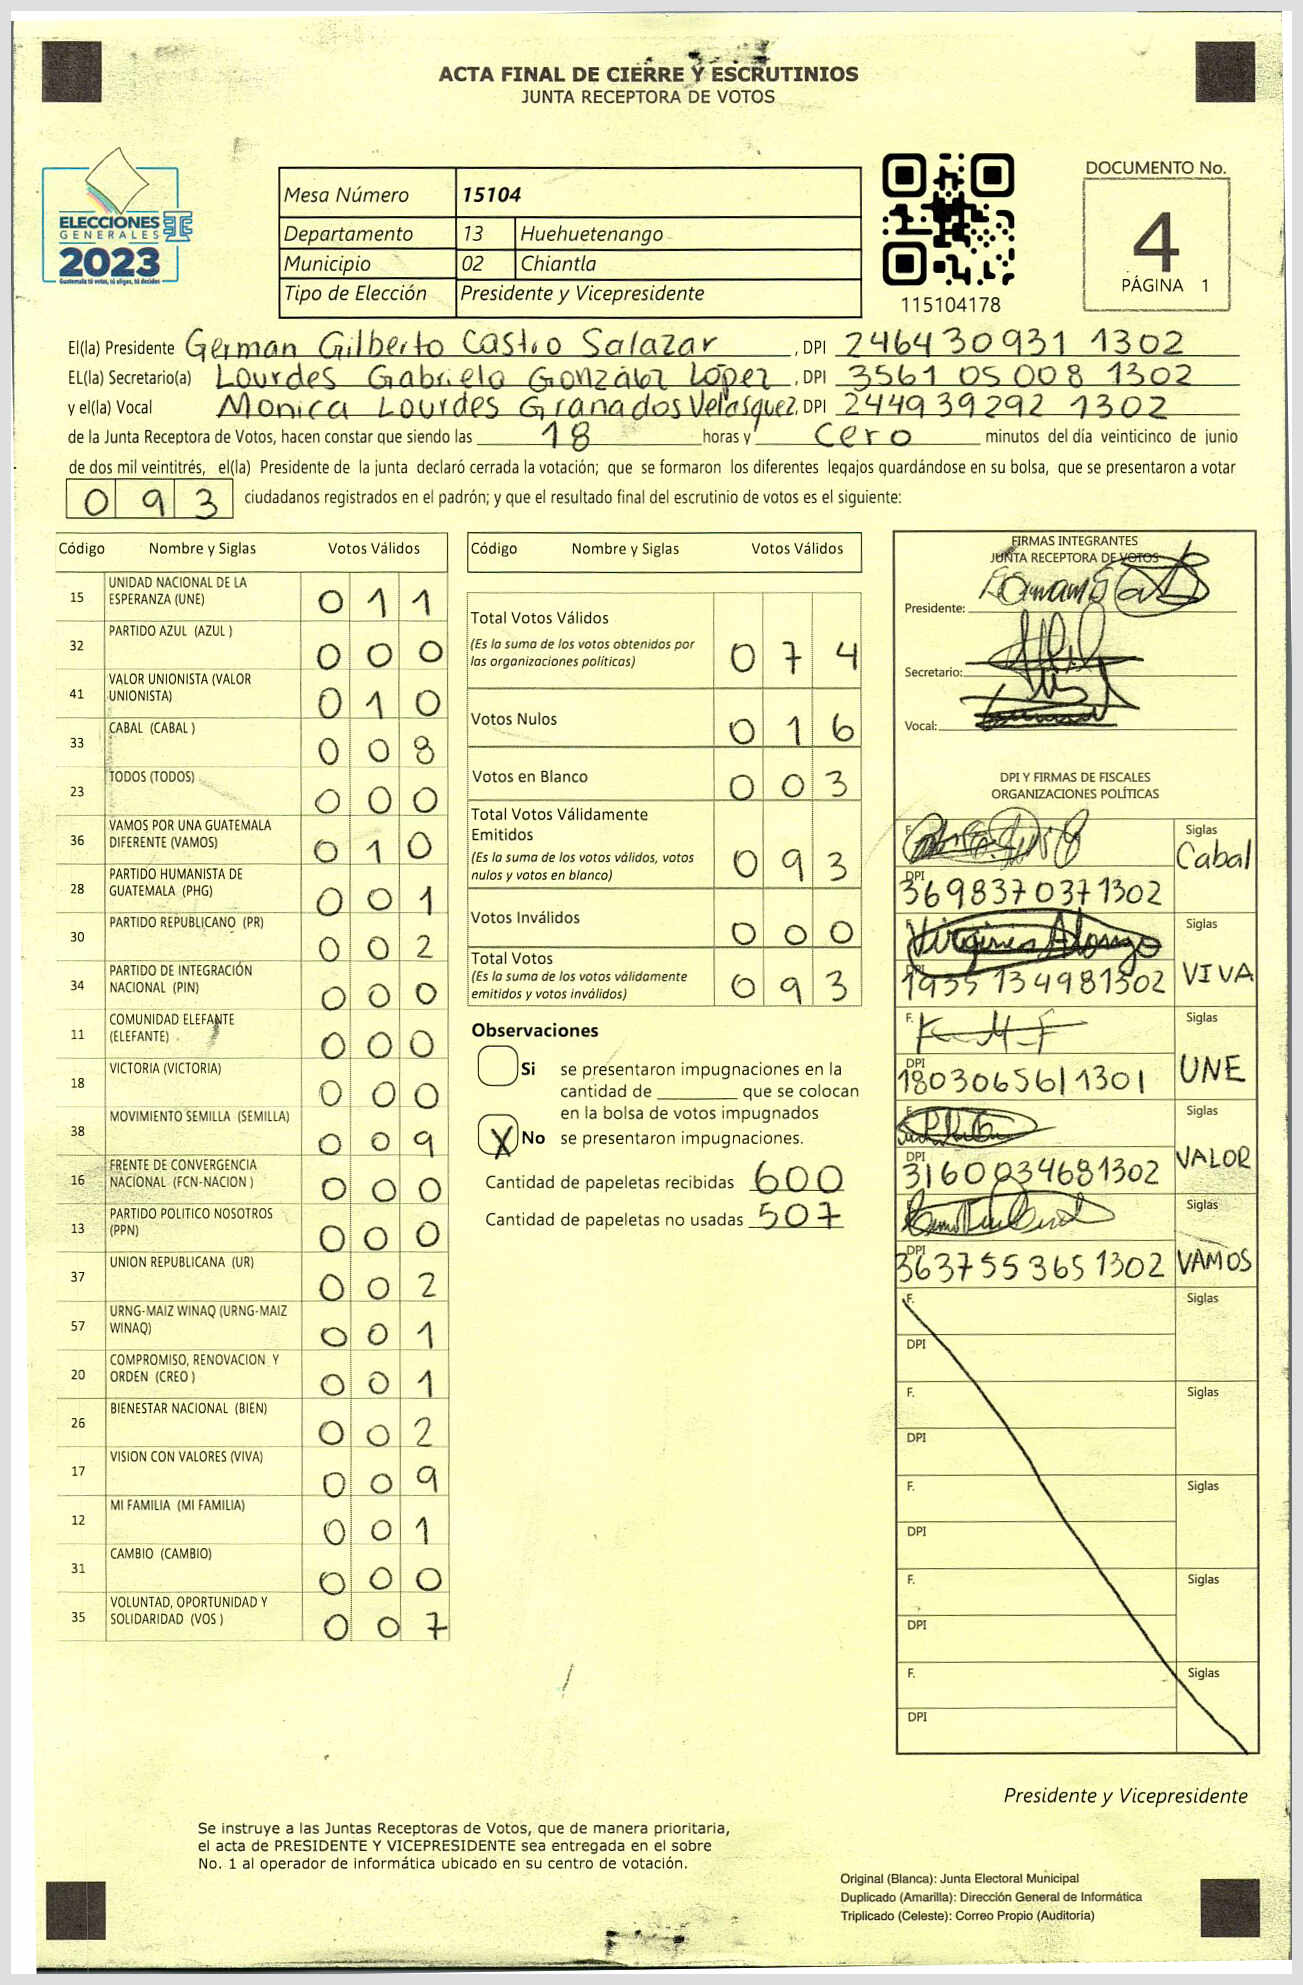 ACTA FINAL DE CIERRE Y ESCRUTINIOS
JUNTA RECEPTORA DE VOTOS
ELECCIONES
GENERALES
2023
Guatemala tú votas, tú eliges, tú decides
Mesa Número 15104
Departamento 13 Huehuetenango
Municipio 02 Chiantla
Tipo de Elección Presidente y Vicepresidente
115104178
DOCUMENTO No.
4
PÁGINA 1
El(la) Presidente German Gilberto Castro Salazar, DPI 246430931 1302
EL(la) Secretario(a) Lourdes Gabriela González López, DPI 3561 05 008 1302
y el(la) Vocal Monica Lourdes Granados Velasquez, DPI 244939292 1302
de la Junta Receptora de Votos, hacen constar que siendo las 18 horas y cero minutos del día veinticinco de junio
de dos mil veintitrés, el(la) Presidente de la junta declaró cerrada la votación; que se formaron los diferentes legajos guardándose en su bolsa, que se presentaron a votar
093 ciudadanos registrados en el padrón; y que el resultado final del escrutinio de votos es el siguiente:
Código Nombre y Siglas Votos Válidos
15 UNIDAD NACIONAL DE LA ESPERANZA (UNE) 011
32 PARTIDO AZUL (AZUL ) 000
41 VALOR UNIONISTA (VALOR UNIONISTA) 010
33 CABAL (CABAL ) 008
23 TODOS (TODOS) 000
36 VAMOS POR UNA GUATEMALA DIFERENTE (VAMOS) 010
28 PARTIDO HUMANISTA DE GUATEMALA (PHG) 001
30 PARTIDO REPUBLICANO (PR) 002
34 PARTIDO DE INTEGRACIÓN NACIONAL (PIN) 000
11 COMUNIDAD ELEFANTE (ELEFANTE) 000
18 VICTORIA (VICTORIA) 000
38 MOVIMIENTO SEMILLA (SEMILLA) 009
16 FRENTE DE CONVERGENCIA NACIONAL (FCN-NACION ) 000
13 PARTIDO POLITICO NOSOTROS (PPN) 000
37 UNION REPUBLICANA (UR) 002
57 URNG-MAIZ WINAQ (URNG-MAIZ WINAQ) 001
20 COMPROMISO, RENOVACION Y ORDEN (CREO ) 001
26 BIENESTAR NACIONAL (BIEN) 002
17 VISION CON VALORES (VIVA) 009
12 MI FAMILIA (MI FAMILIA) 001
31 CAMBIO (CAMBIO) 000
35 VOLUNTAD, OPORTUNIDAD Y SOLIDARIDAD (VOS ) 007
Código Nombre y Siglas Votos Válidos
Total Votos Válidos
(Es la suma de los votos obtenidos por
las organizaciones políticas) 074
Votos Nulos 016
Votos en Blanco 003
Total Votos Válidamente
Emitidos
(Es la suma de los votos válidos, votos
nulos y votos en blanco) 093
Votos Inválidos 000
Total Votos
(Es la suma de los votos válidamente
emitidos y votos inválidos) 093
Observaciones
Si se presentaron impugnaciones en la
cantidad de ________ que se colocan
en la bolsa de votos impugnados
X No se presentaron impugnaciones.
Cantidad de papeletas recibidas 600
Cantidad de papeletas no usadas 507
FIRMAS INTEGRANTES
JUNTA RECEPTORA DE VOTOS
Presidente:
Secretario:
Vocal:
DPI Y FIRMAS DE FISCALES
ORGANIZACIONES POLÍTICAS
F. Siglas
Cabal
DPI 3698370371302
Virginia Alonzo Siglas
VIVA
DPI 1935 134981302
F. Siglas
UNE
DPI 1803065611301
F. Siglas
VALOR
DPI 3160034681302
Siglas
VAMOS
DPI 3637553651302
F. Siglas
DPI
F. Siglas
DPI
F. Siglas
DPI
F. Siglas
DPI
F. Siglas
DPI
Presidente y Vicepresidente
Se instruye a las Juntas Receptoras de Votos, que de manera prioritaria,
el acta de PRESIDENTE Y VICEPRESIDENTE sea entregada en el sobre
No. 1 al operador de informática ubicado en su centro de votación.
Original (Blanca): Junta Electoral Municipal
Duplicado (Amarilla): Dirección General de Informática
Triplicado (Celeste): Correo Propio (Auditoría)